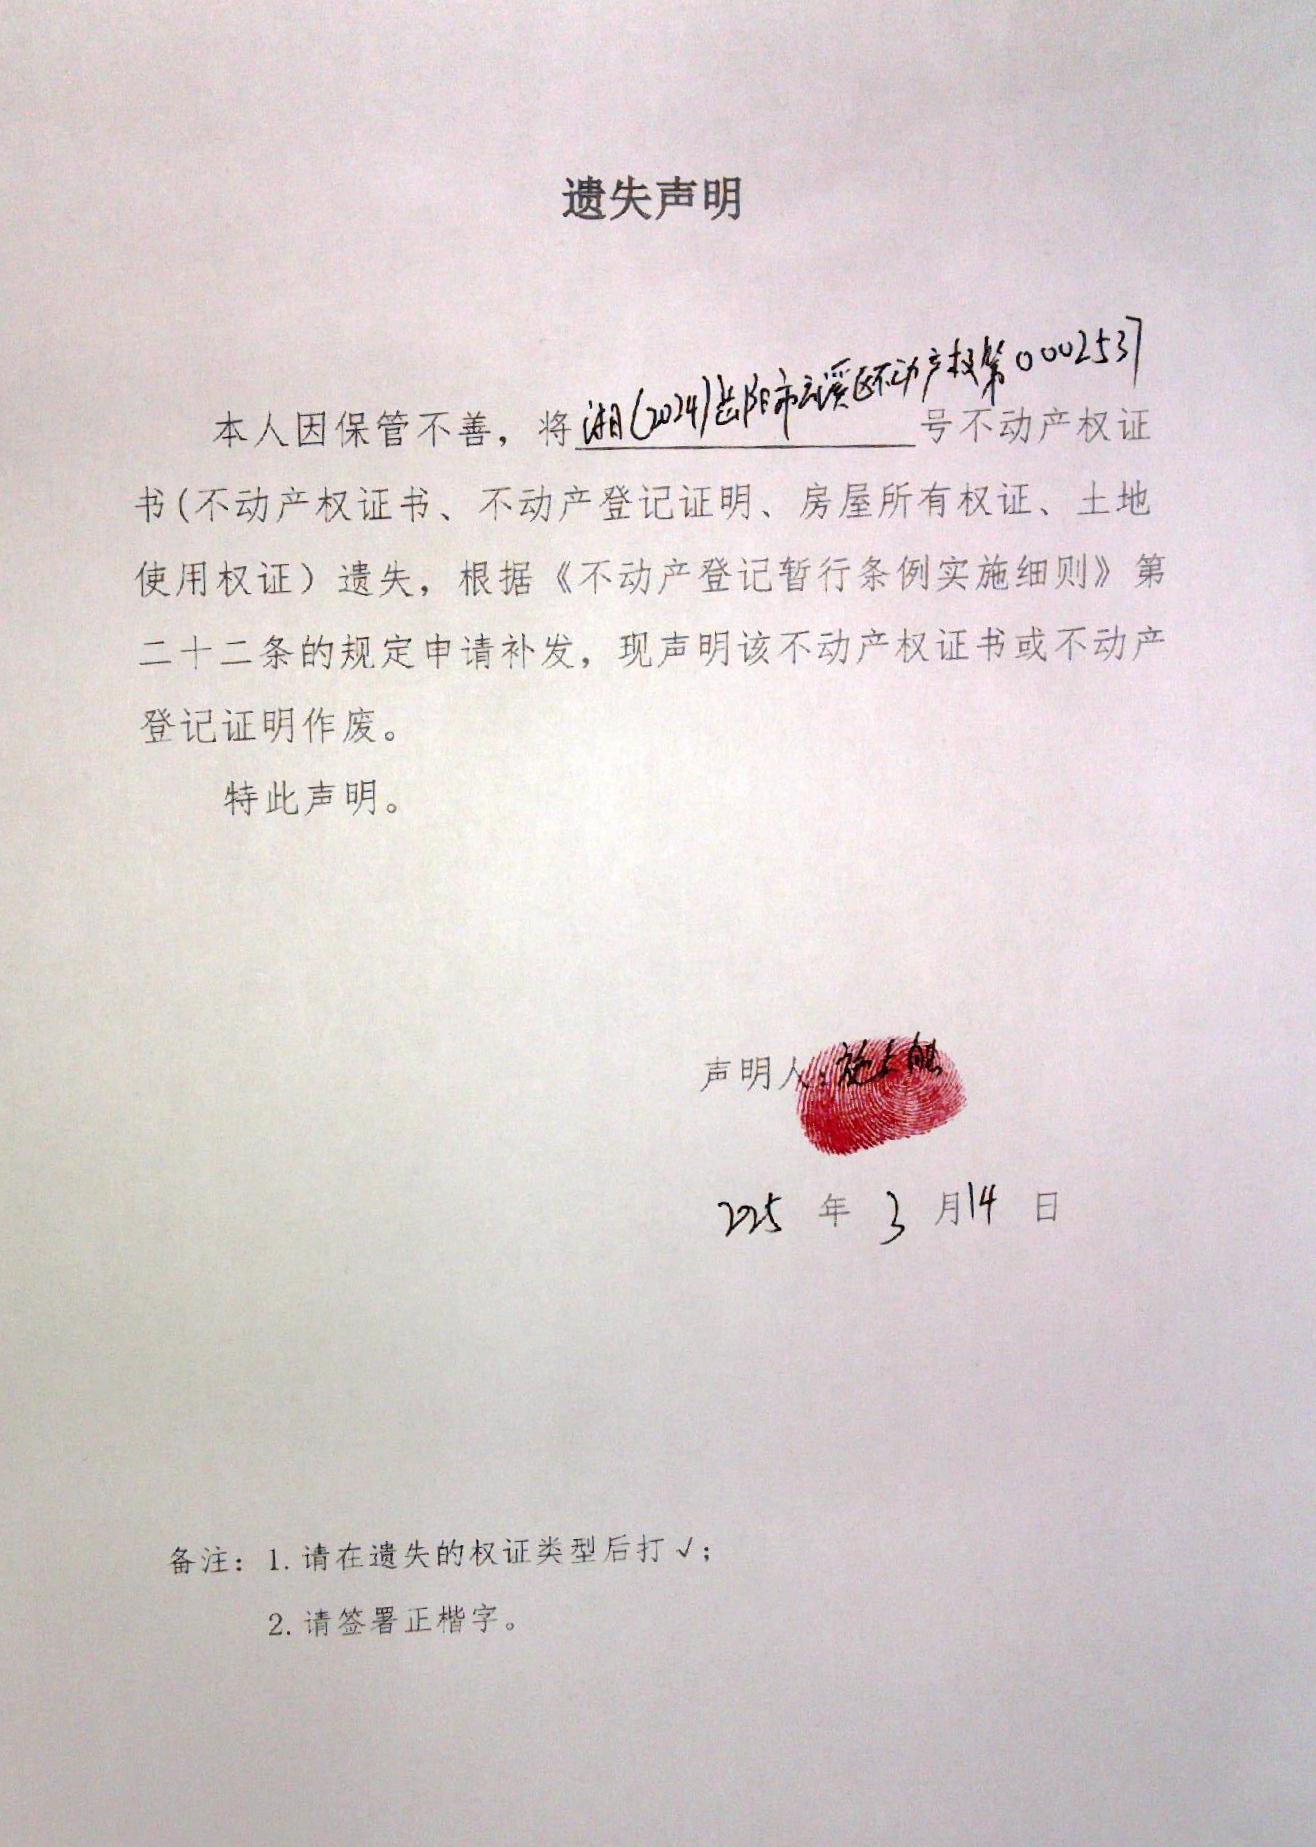 遗失声明
本人因保管不善，将湘(2024)岳阳市云溪区不动产权第0002537号不动产权证
书(不动产权证书、不动产登记证明、房屋所有权证、土地
使用权证）遗失，根据《不动产登记暂行条例实施细则》第
二十二条的规定申请补发，现声明该不动产权证书或不动产
登记证明作废。
特此声明。
声明人：施
2025 年 3 月 14 日
备注：1. 请在遗失的权证类型后打 √；
2. 请签署正楷字。